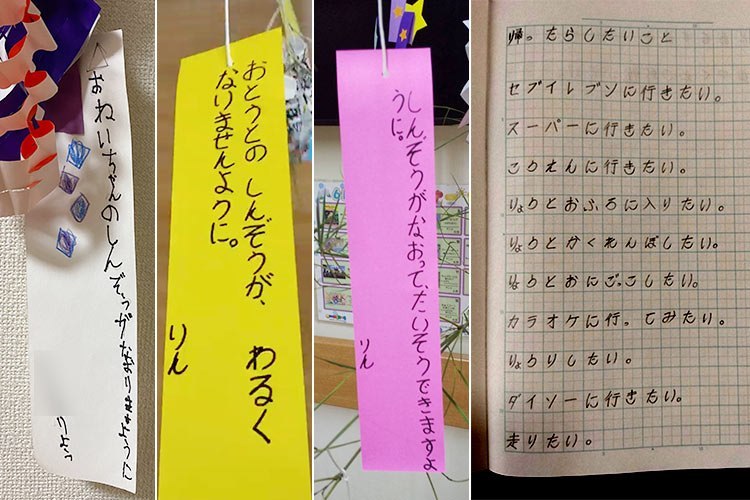 おねいちゃんのしんぞうがなおりますように
りょう
おとうとの しんぞうが、わるく
なりませんように。
りん
しんぞうがなおって、たいそうできますよ
うに。
りん
帰ったらしたいこと
セブイレブンに行きたい。
スーパーに行きたい。
こうえんに行きたい。
りょうとおふろに入りたい。
りょうとかくれんぼしたい。
りょうとおにごっこしたい。
カラオケに行ってみたい。
りょうりしたい。
ダイソーに行きたい。
走りたい。